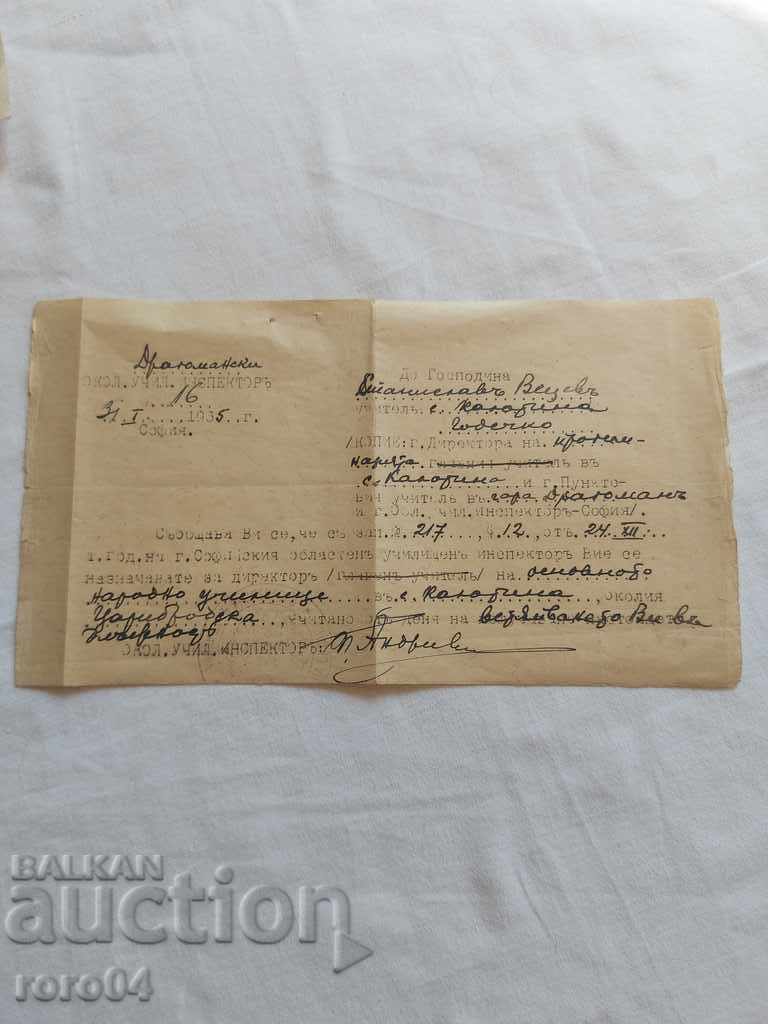 Драгомански
ОКОЛ. УЧИЛ. ИНСПЕКТОРЪ
16
31.I. 1935 г.
София.
До Господина
Станиславъ Вецевъ
учитель с. Калотина
Годечко
/КОПИЕ: г. Директора на прогим-
назията главен учитель въ
с. Калотина и г. Пункто-
вия учитель въ гара Драгоманъ
и г. Обл. учил. инспекторъ-София/.
Съобщава Ви се, че съ зап. № 217, ч. 12, отъ 24.XII.
г. год. на г. Софийския областенъ училищенъ инспекторъ Вие се
назначавате за директоръ /главенъ учитель/ на основното
народно училище въ с. Калотина, околия
Царибродска, считано от деня на встѫпването Ви въ
длъжность
ОКОЛ. УЧИЛ. ИНСПЕКТОРЪ:
BALKAN
auction
roro04